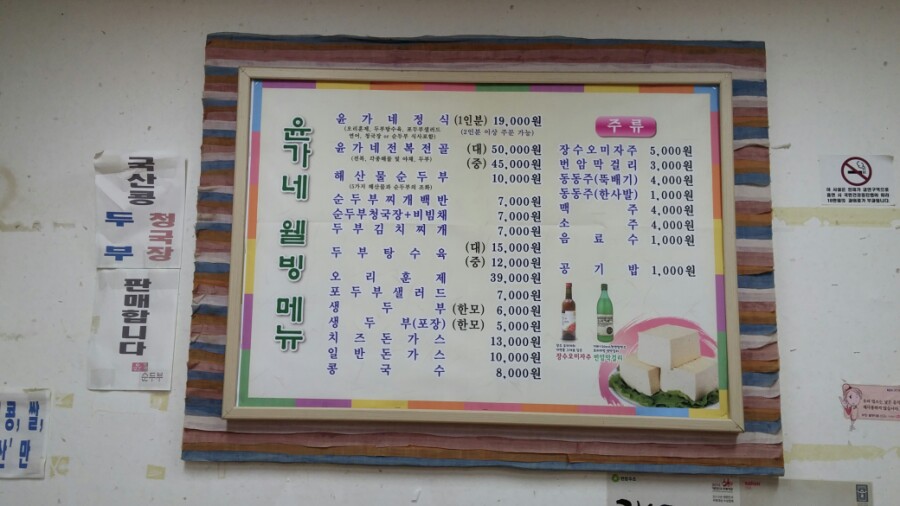 윤가네 웰빙 메뉴
윤가네정식 (1인분) 19,000원
(오리훈제, 두부탕수육, 포두부샐러드 (2인분 이상 주문 가능)
연어, 청국장 or 순두부 식사포함)
윤가네전복전골 (대) 50,000원
(중) 45,000원
해산물순두부 10,000원
(5가지 해산물과 순두부의 조화)
순두부찌개백반 7,000원
순두부청국장+비빔채 7,000원
두부김치찌개 7,000원
두부탕수육 (대) 15,000원
(중) 12,000원
오리훈제 39,000원
포두부샐러드 7,000원
생두부 (한모) 6,000원
생두부(포장) (한모) 5,000원
치즈돈가스 13,000원
일반돈가스 10,000원
콩국수 8,000원
주류
장수오미자주 5,000원
번암막걸리 3,000원
동동주(뚝배기) 4,000원
동동주(한사발) 1,000원
맥주 4,000원
소주 4,000원
음료수 1,000원
공기밥 1,000원
장수오미자주 번암막걸리
국산콩
두부
청국장
판매합니다
순두부